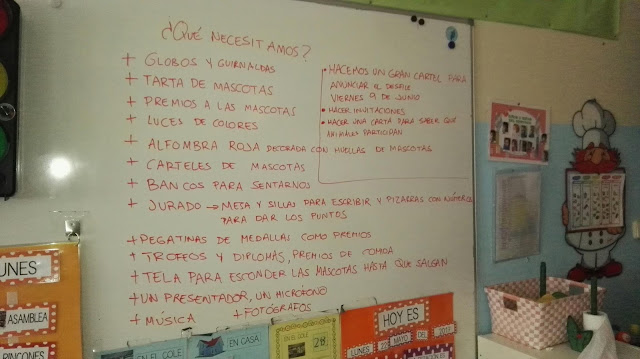 ¿QUÉ NECESITAMOS?
+ GLOBOS Y GUIRNALDAS
+ TARTA DE MASCOTAS
+ PREMIOS A LAS MASCOTAS
+ LUCES DE COLORES
+ ALFOMBRA ROJA DECORADA CON HUELLAS DE MASCOTAS
+ CARTELES DE MASCOTAS
+ BANCOS PARA SENTARNOS
+ JURADO → MESA Y SILLAS PARA ESCRIBIR Y PIZARRAS CON NÚMEROS
PARA DAR LOS PUNTOS
+ PEGATINAS DE MEDALLAS COMO PREMIOS
+ TROFEOS Y DIPLOMAS, PREMIOS DE COMIDA
+ TELA PARA ESCONDER LAS MASCOTAS HASTA QUE SALGAN
+ UN PRESENTADOR, UN MICRÓFONO
+ MÚSICA + FOTÓGRAFOS
• HACEMOS UN GRAN CARTEL PARA
ANUNCIAR EL DESFILE
VIERNES 9 DE JUNIO
• HACER INVITACIONES
• HACER UNA CARTA PARA SABER QUE
ANIMALES PARTICIPAN
LUNES
ASAMBLEA
RINCONES
EN EL COLE
EN CASA
EN EL COLE
HOY ES
LUNES MAYO DEL 2017